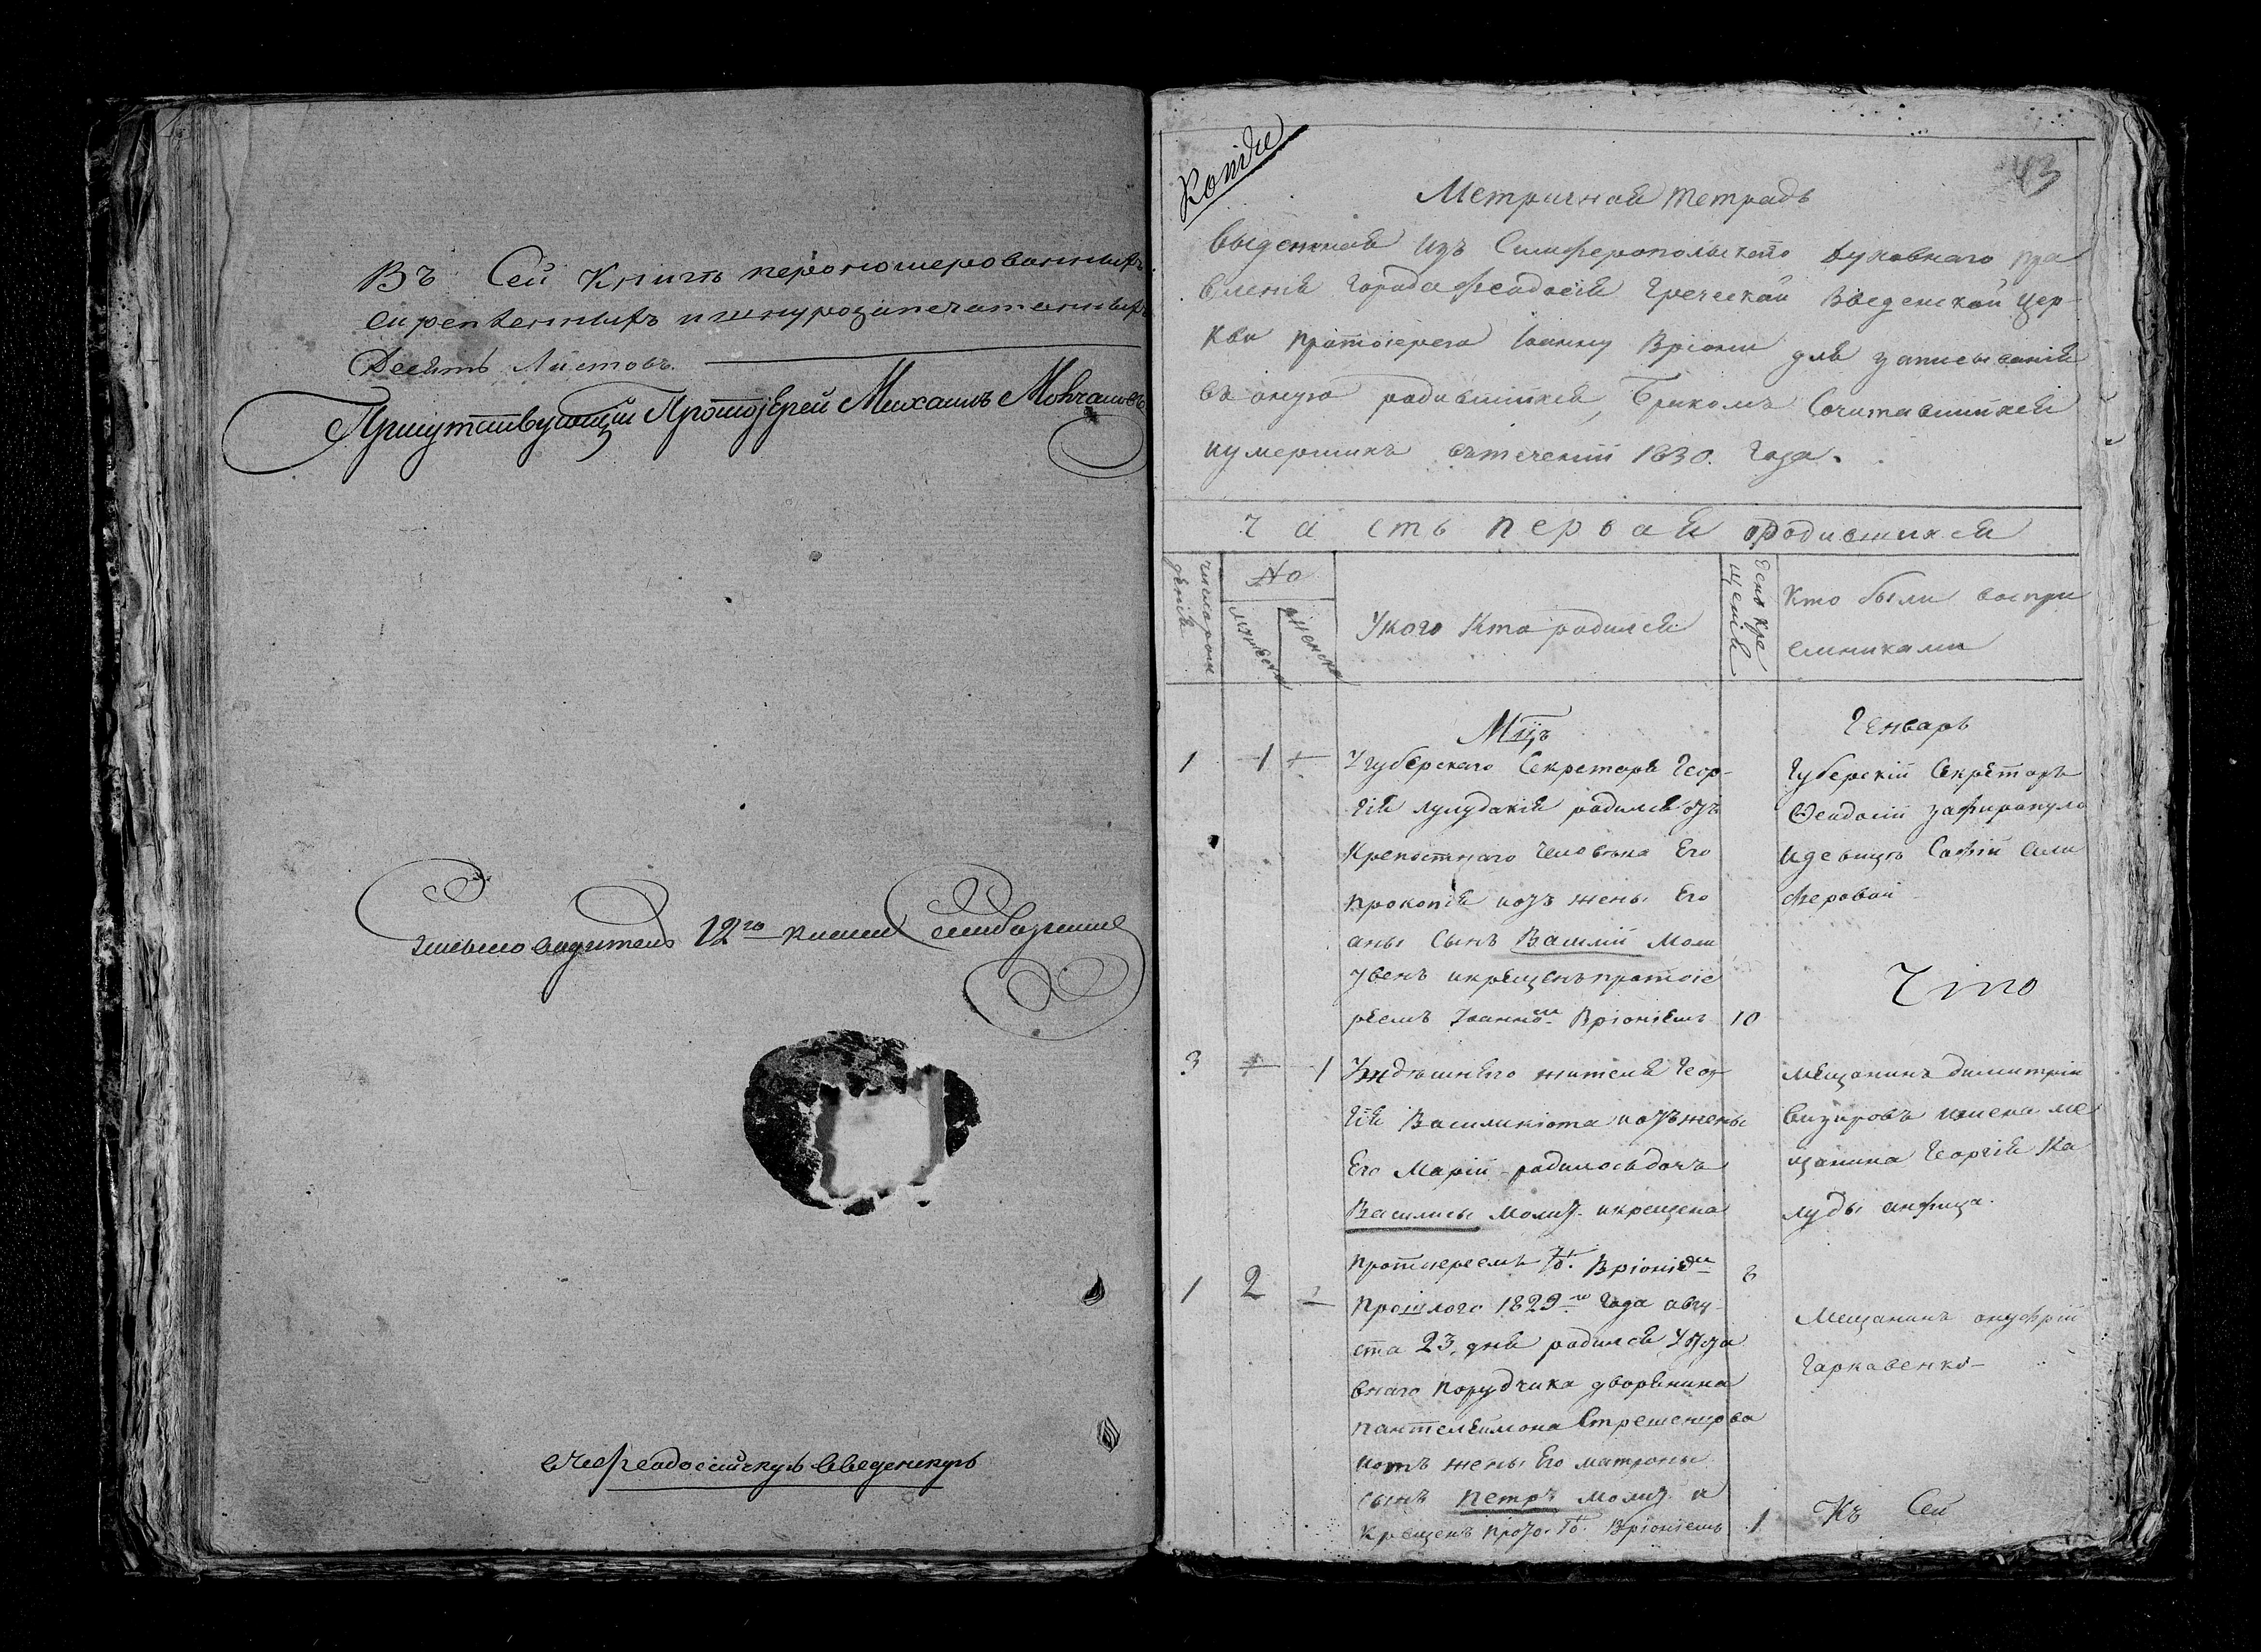 Въ Сей Книгѣ перономерованныхъ
скрепленныхъ и шнурозапечатанныхъ
Десять Листовъ.
Присутствующій Протоіерей Михаилъ
Письмоводитель 12го класса
въ Феодосійскую Введенскую
Копіе
43
Метричная тетрадь
выденная изъ Симферопольскаго Духовнаго пра
вленія города Феодосіи Греческой Введенской Цер-
кви протоіерею Іоанну Вріони для записыванія
въ оную родившихся, Бракомъ Сочитавшихся
и умершихъ въ теченіи 1830. Года.
часть первая о Родившихся
число рож
денія
№
мужеска
женска
У кого Кто родился
День кре
щенія
Кто были воспри
емниками
Мцъ
Генварь
1 1 +
У губерскаго Секретаря Геор-
гія лулудакія родился отъ
Крепостнаго человека Его
прокопія и отъ жены Его
аны Сынъ Василій Моли
твенъ и крещенъ протоіе
реемъ Іоанномъ Вріоніемъ 10
Губерскій Секретарь
Ѳеодосій зафиропуло
и девица Софія Али
феровой
3 + 1
Здешнего жителя Геор
гія Василикіота и отъ жены
Его Маріи родилось дочь
Василисы молит. и крещена
протоиереемъ Іо. Вріоніемъ 6
мещанинъ димитрій
Визировъ и жена ме
щанина Георгія Ка
луды анфица.
1 2
прошлого 1829го Года авгу
ста 23. дня родился У отста
внаго порутчика дворянина
пантелеимона Стрешенцова
и отъ жены Его матроны
сынъ петръ молит. и
Крещенъ прото. Іо. Вріоніемъ 1
Мещанинъ онуфрій
Гаркавенко
Къ Сей